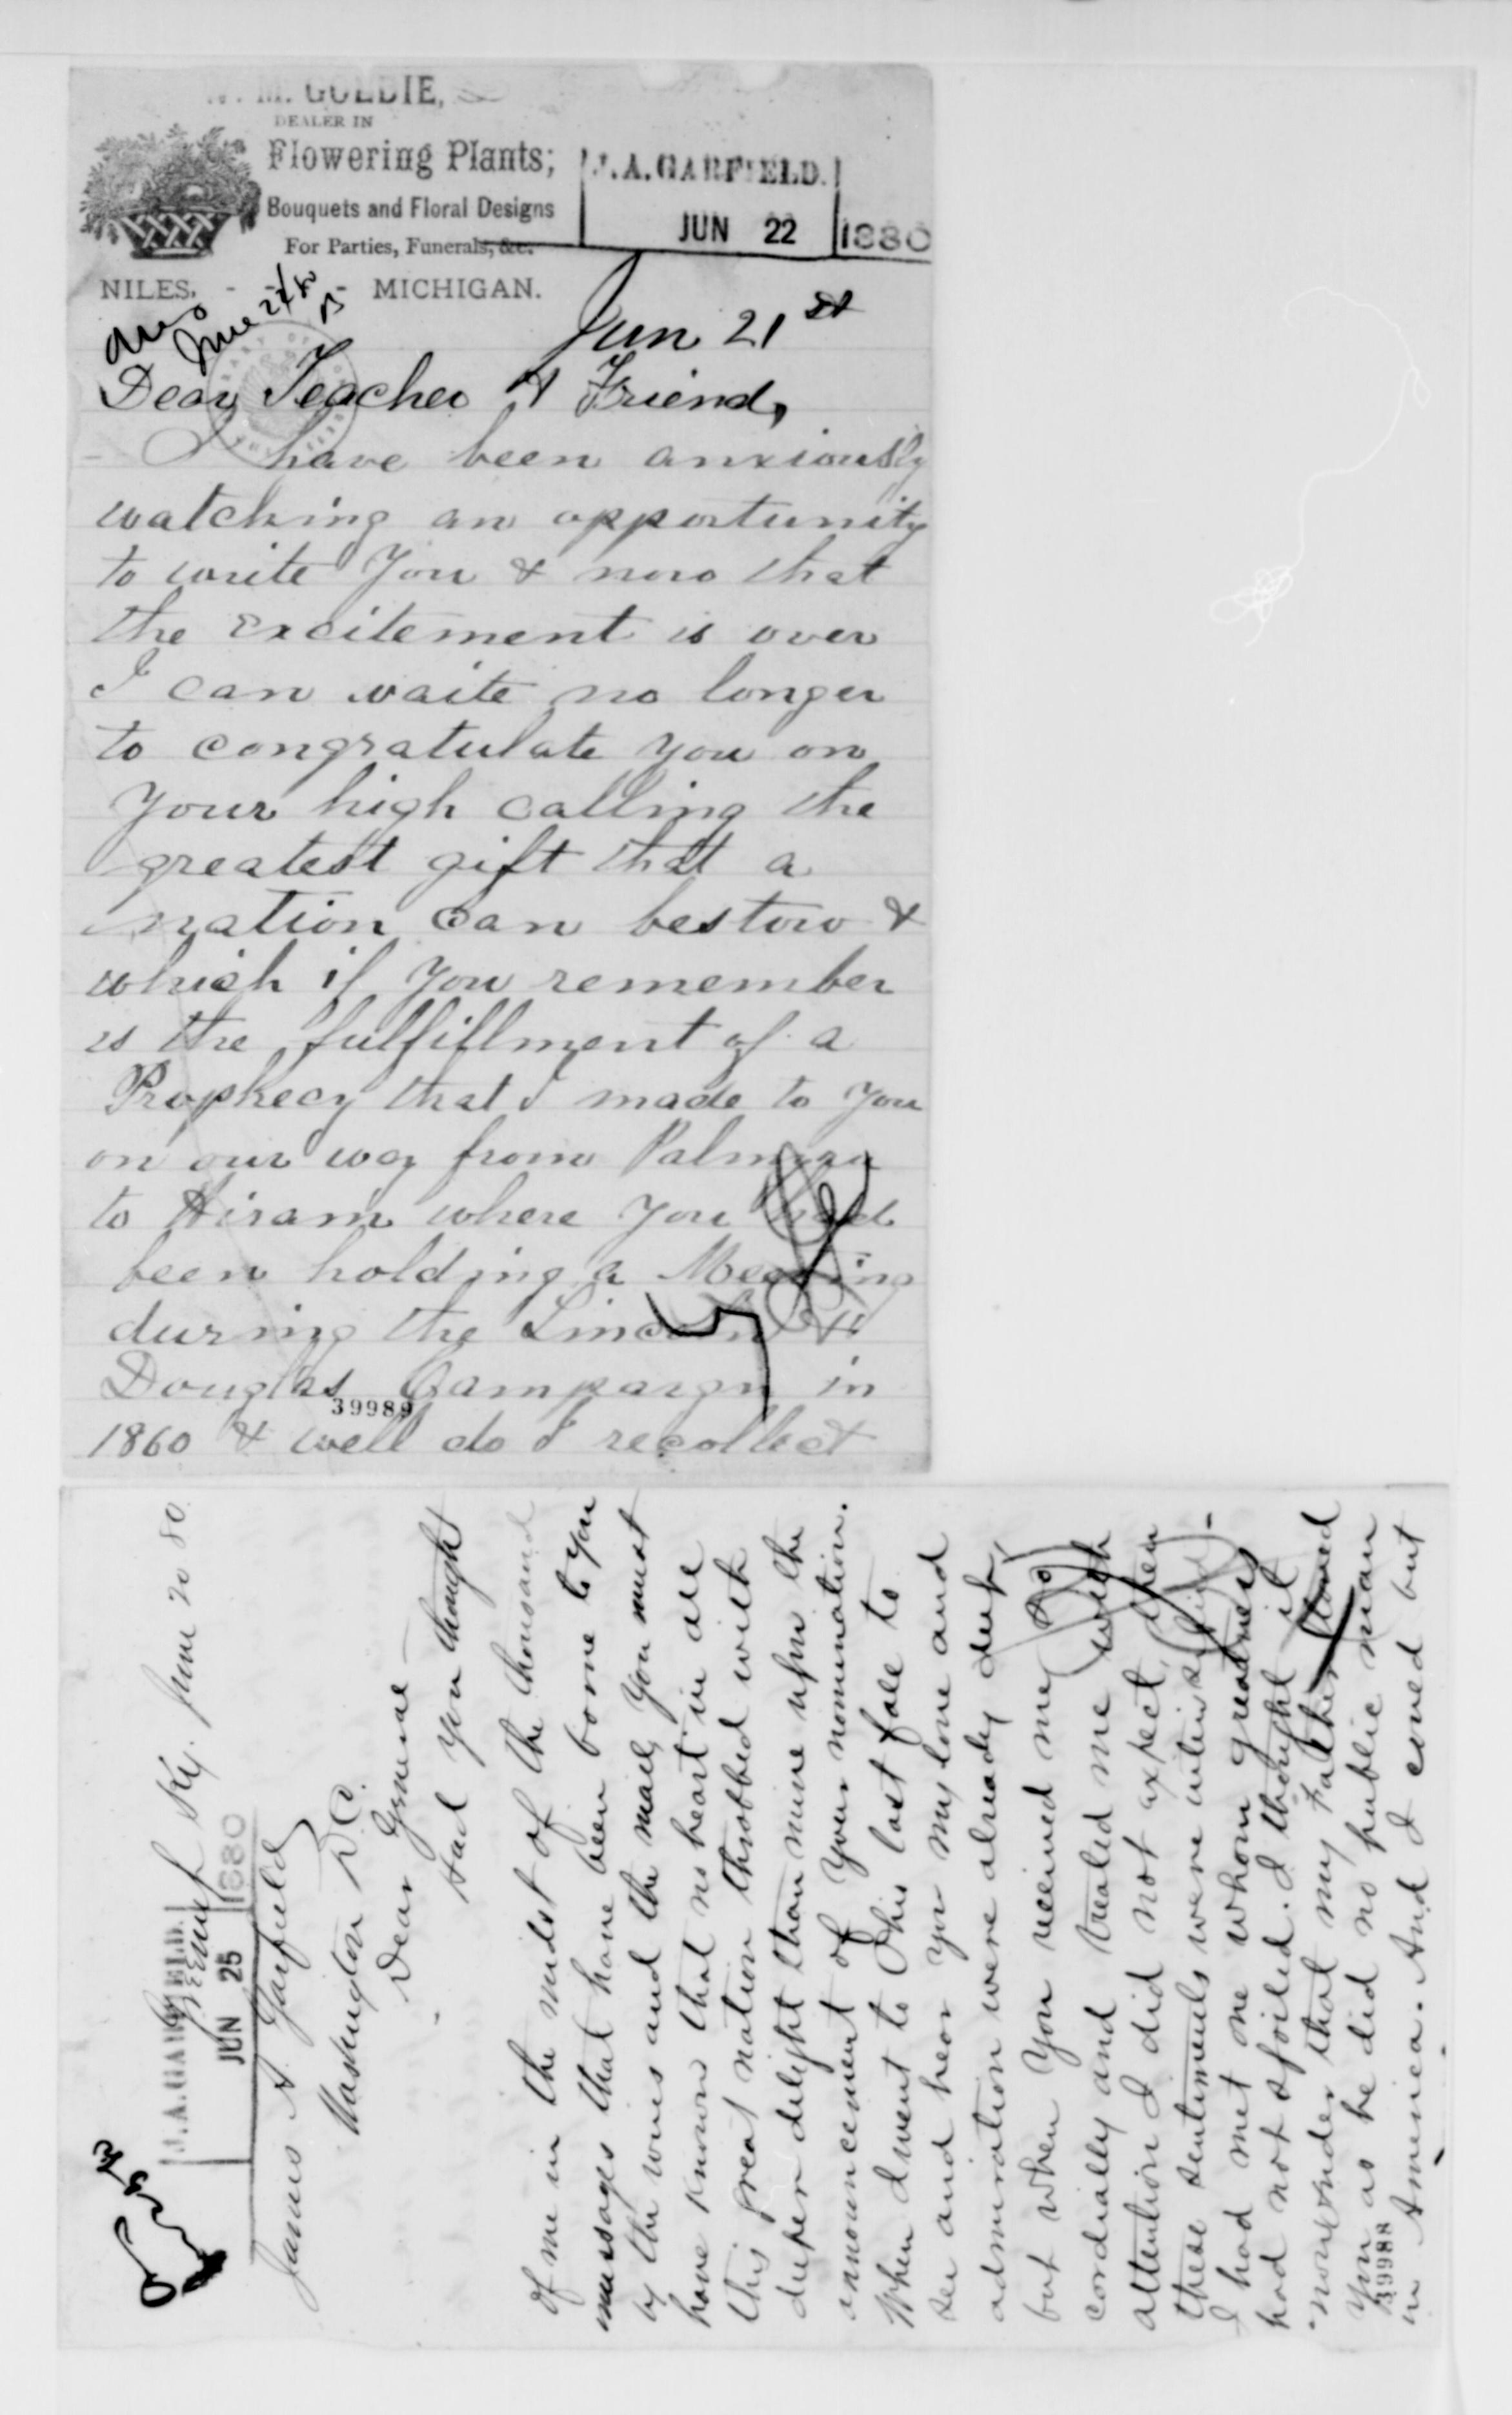 M. GOLDIE,
DEALER IN
Flowering Plants;
Bouquets and Floral Designs
For Parties, Funerals, &c.
NILES, - - - MICHIGAN.
J.A. GARFIELD.
JUN 22 1880
Ans
June 24/80
Jun 21st
Dear Teacher & Friend,
I have been anxiously
watching an opportunity
to write You & now that
the excitement is over
I can waite no longer
to congratulate you on
Your high calling the
greatest gift that a
nation can bestow &
which if You remember
is the fulfillment of a
Prophecy that I made to You
on our way from Palmyra
to Hiram where You had
been holding a Meeting
during the Lincoln &
Douglas Campaign in
39989
1860 & well do I recollect
Ky. June 20 80
J.A. GARFIELD.
JUN 25 1880
James A. Garfield
Washington D.C.
Dear General —
Had you thought
of me in the midst of the thousand
messages that have been borne to You
by the wires and the mail, You must
have known that no heart in all
this great nation throbbed with
deeper delight than mine upon the
announcement of Your nomination.
When I went to Ohio last fall to
see and hear You my love and
admiration were already deep,
but when You received me so
cordially and treated me with
attention I did not expect, then
these sentiments were intensified -
I had met one whom greatness
had not spoiled. I thought it
no wonder that my Father loved
You as he did no public man
39988
in America. And I could but